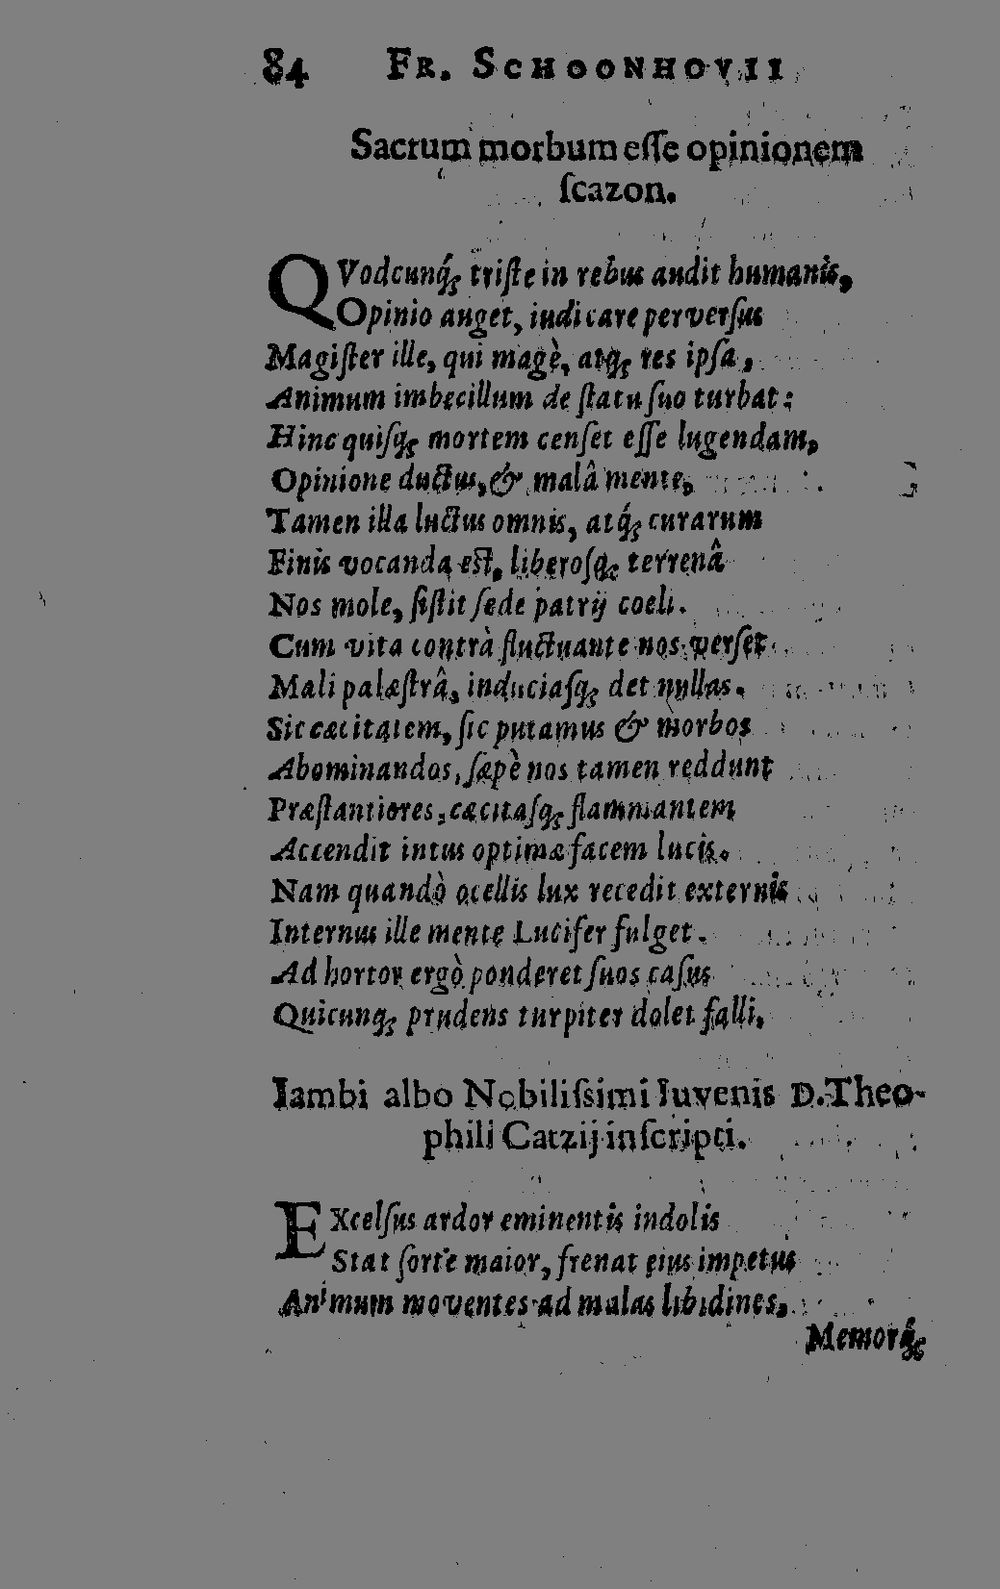 84 FR. SCHOONHOVII
Sacrum morbum eſſe opinionem
ſcazon.
QVodcunq́; triſte in rebus audit humanis,
Opinio auget, iudicare perverſus
Magiſter ille, qui magè, atq; res ipſa,
Animum imbecillum de ſtatu ſuo turbat:
Hinc quiſq; mortem cenſet eſſe lugendam,
Opinione ductus, & malâ mente,
Tamen illa luctus omnis, atq́; curarum
Finis vocanda est, liberoſq; terrenâ
Nos mole, ſiſtit ſede patrij coeli.
Cum vita contrà fluctuante nos verſet
Mali palæſtrâ, induciaſq; det nullas.
Sic cæcitatem, ſic putamus & morbos
Abominandos, ſæpè nos tamen reddunt
Præſtantiores, cæcitaſq; flammantem
Accendit intus optimæ facem lucis.
Nam quandò ocellis lux recedit externis
Internus ille mente Lucifer fulget.
Ad hortor ergò ponderet ſuos caſus
Quicunq; prudens turpiter dolet falli,
Iambi albo Nobiliſsimi Iuvenis D. Theo-
phili Catzij inſcripti.
EXcelſus ardor eminentis indolis
Stat ſorte maior, frenat eius impetus
Animum moventes ad malas libidines,
Memorq́;